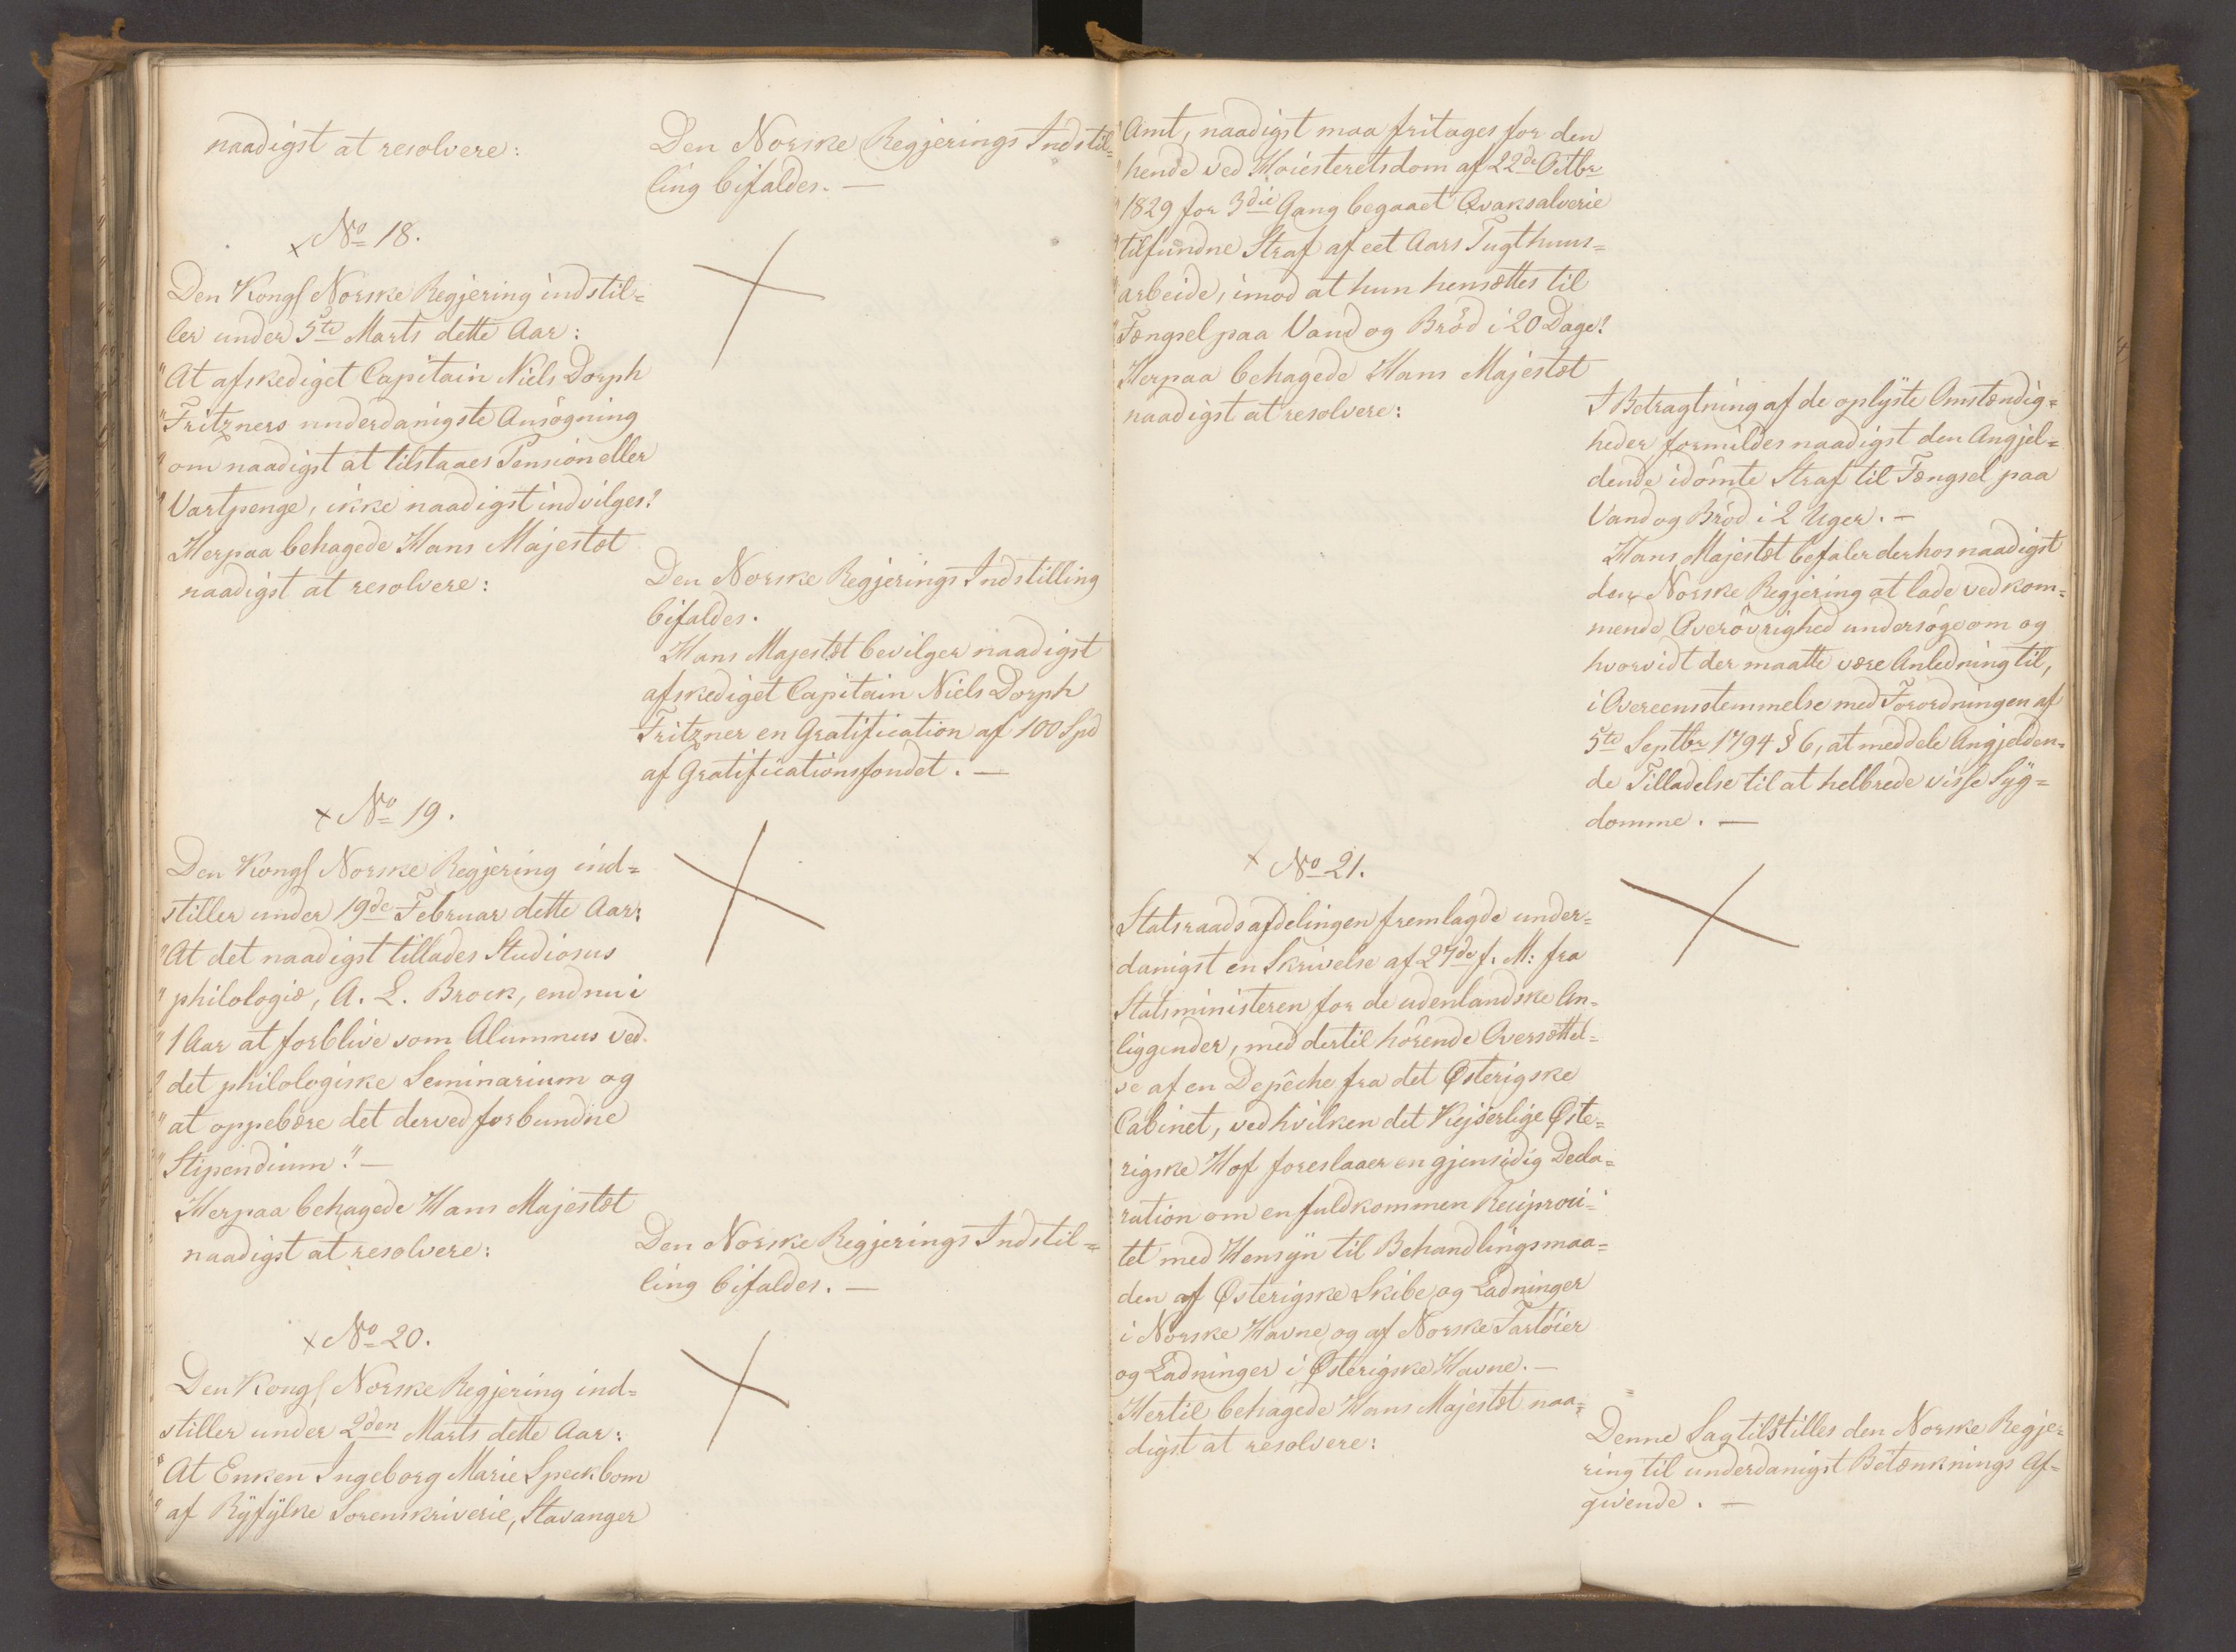 naadigst at resolvere:
Den Norske Regjerings Indstil=
ling bifaldes. —
No 18.
Den Kongl Norske Regjering indstil=
ler under 5te Marts dette Aar:
"At afskediget Capitain Niels Dorph
"Fritzners underdanigste Ansögning
"om naadigst at tilstaaes Pension eller
"Vartpenge, ikke naadigst indvilges."
Herpaa behagede Hans Majestæt
naadigst at resolvere:
Den Norske Regjerings Indstilling
bifaldes.
Hans Majestæt bevilger naadigst
afskediget Capitain Niels Dorph
Fritzner en Gratification af 100 Spd
af Gratificationsfondet. —
No 19.
Den Kongl Norske Regjering ind=
stiller under 19de Februar dette Aar:
"At det naadigst tillades Studiosus
"philologiæ, A. L. Brock, endnu i
"1 Aar at forblive som Alumnus ved
"det philologiske Seminarium og
"at oppebære det derved forbundne
"Stipendium." —
Herpaa behagede Hans Majestæt
naadigst at resolvere:
Den Norske Regjerings Indstil=
ling bifaldes. —
No 20.
Den Kongl Norske Regjering ind=
stiller under 2den Marts dette Aar:
"At Enken Ingeborg Marie Speckbom
"af Ryfylke Sorenskriverie, Stavanger
"Amt, naadigst maa fritages for den
"hende ved Hoiesteretsdom af 22de Octbr
"1829 for 3die Gang begaaet Qvaksalverie
"tilfundne Straf af eet Aars Tugthuus=
"arbeide, imod at hun hensættes til
"Fængsel paa Vand og Bröd i 20 Dage."
Herpaa behagede Hans Majestæt
naadigst at resolvere:
I Betragtning af de oplyste Omstændig=
heder formildes naadigst den Angjel=
dende idömte Straf til Fængsel paa
Vand og Bröd i 2 Uger. —
Hans Majestæt befaler derhos naadigst
den Norske Regjering at lade vedkom=
mende Overövrighed undersöge om og
hvorvidt der maatte være Anledning til,
i Overeensstemmelse med Forordningen af
5te Septbr 1794 § 6, at meddele Angjelden=
de Tilladelse til at helbrede visse Syg=
domme. —
No 21.
Statsraadsafdelingen fremlagde under=
danigst en Skrivelse af 27de f. M: fra
Statsministeren for de udenlandske An=
liggender, med dertil hörende Oversættel=
se af en Depêche fra det Østerigske
Cabinet, ved hvilken det Kejserlige Øste=
rigske Hof foreslaaer en gjensidig Decla=
ration om en fuldkommen Reciproci=
tet med Hensyn til Behandlingsmaa=
den af Østerigske Skibe og Ladninger
i Norske Havne og af Norske Fartöier
og Ladninger i Østerigske Havne. —
Hertil behagede Hans Majestæt naa=
digst at resolvere:
Denne Sag tilstilles den Norske Regje=
ring til underdanigst Betænknings Af=
givende. —